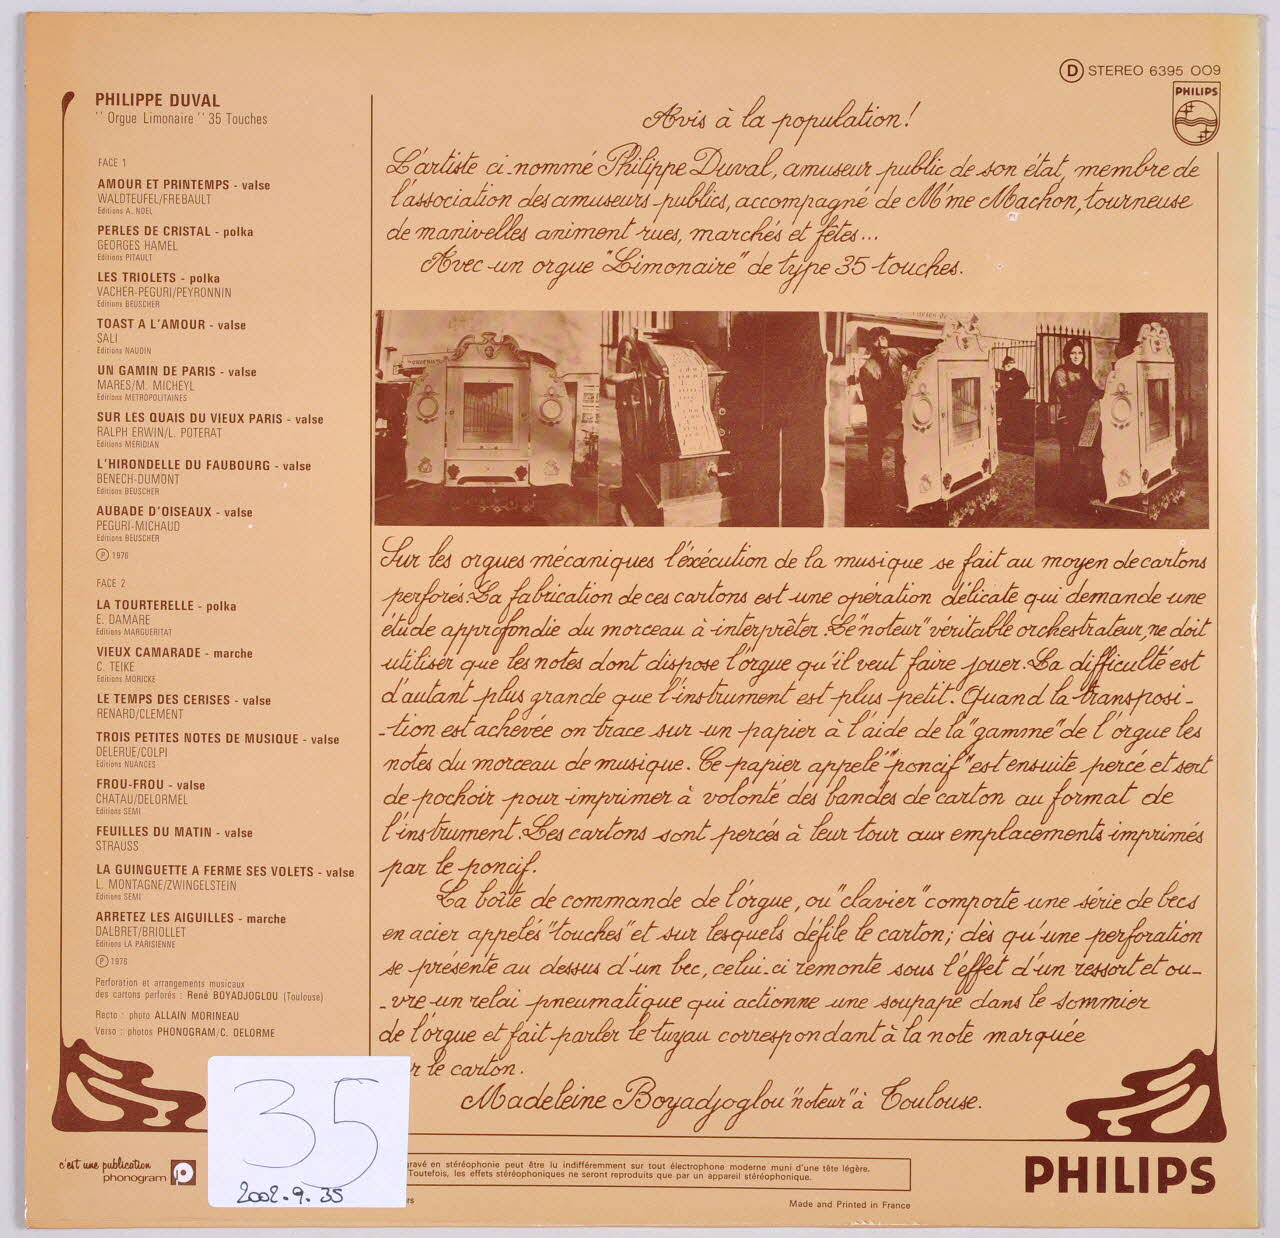 D STEREO 6395 009
PHILIPS
PHILIPPE DUVAL
'' Orgue Limonaire '' 35 Touches
FACE 1
AMOUR ET PRINTEMPS - valse
WALDTEUFEL/FREBAULT
Editions A. NOEL
PERLES DE CRISTAL - polka
GEORGES HAMEL
Editions PITAULT
LES TRIOLETS - polka
VACHER-PEGURI/PEYRONNIN
Editions BEUSCHER
TOAST A L'AMOUR - valse
SALI
Editions NAUDIN
UN GAMIN DE PARIS - valse
MARES/M. MICHEYL
Editions METROPOLITAINES
SUR LES QUAIS DU VIEUX PARIS - valse
RALPH ERWIN/L. POTERAT
Editions MERIDIAN
L'HIRONDELLE DU FAUBOURG - valse
BENECH-DUMONT
Editions BEUSCHER
AUBADE D'OISEAUX - valse
PEGURI-MICHAUD
Editions BEUSCHER
Ⓟ 1976
FACE 2
LA TOURTERELLE - polka
E. DAMARE
Editions MARGUERITAT
VIEUX CAMARADE - marche
C. TEIKE
Editions MORICKE
LE TEMPS DES CERISES - valse
RENARD/CLEMENT
TROIS PETITES NOTES DE MUSIQUE - valse
DELERUE/COLPI
Editions NUANCES
FROU-FROU - valse
CHATAU/DELORMEL
Editions SEMI
FEUILLES DU MATIN - valse
STRAUSS
LA GUINGUETTE A FERME SES VOLETS - valse
L. MONTAGNE/ZWINGELSTEIN
Editions SEMI
ARRETEZ LES AIGUILLES - marche
DALBRET/BRIOLLET
Editions LA PARISIENNE
Ⓟ 1976
Perforation et arrangements musicaux
des cartons perforés : René BOYADJOGLOU (Toulouse)
Recto : photo ALLAIN MORINEAU
Verso : photos PHONOGRAM/C. DELORME
Avis à la population!
L'artiste ci-nommé Philippe Duval, amuseur public de son état, membre de
l'association des amuseurs publics, accompagné de M'me Machon, tourneuse
de manivelles animent rues, marchés et fêtes...
Avec un orgue "Limonaire" de type 35 touches.
Sur les orgues mécaniques l'éxécution de la musique se fait au moyen de cartons
perforés. La fabrication de ces cartons est une opération délicate qui demande une
étude approfondie du morceau à interprêter. Le "noteur" véritable orchestrateur, ne doit
utiliser que les notes dont dispose l'orgue qu'il veut faire jouer. La difficulté est
d'autant plus grande que l'instrument est plus petit. Quand la transposi-
-tion est achevée on trace sur un papier à l'aide de la "gamme" de l'orgue les
notes du morceau de musique. Ce papier appelé "poncif" est ensuite percé et sert
de pochoir pour imprimer à volonté des bandes de carton au format de
l'instrument. Les cartons sont percés à leur tour aux emplacements imprimés
par le poncif.
La boîte de commande de l'orgue, ou "clavier" comporte une série de becs
en acier appelés "touches" et sur lesquels défile le carton; dès qu'une perforation
se présente au dessus d'un bec, celui-ci remonte sous l'effet d'un ressort et ou-
-vre un relai pneumatique qui actionne une soupape dans le sommier
de l'orgue et fait parler le tuyau correspondant à la note marquée
r le carton.
Madeleine Boyadjoglou "noteur" à Toulouse.
35
2002.9.35
c'est une publication
phonogram
gravé en stéréophonie peut être lu indifféremment sur tout électrophone moderne muni d'une tête légère.
Toutefois, les effets stéréophoniques ne seront reproduits que par un appareil stéréophonique.
rs
Made and Printed in France
PHILIPS